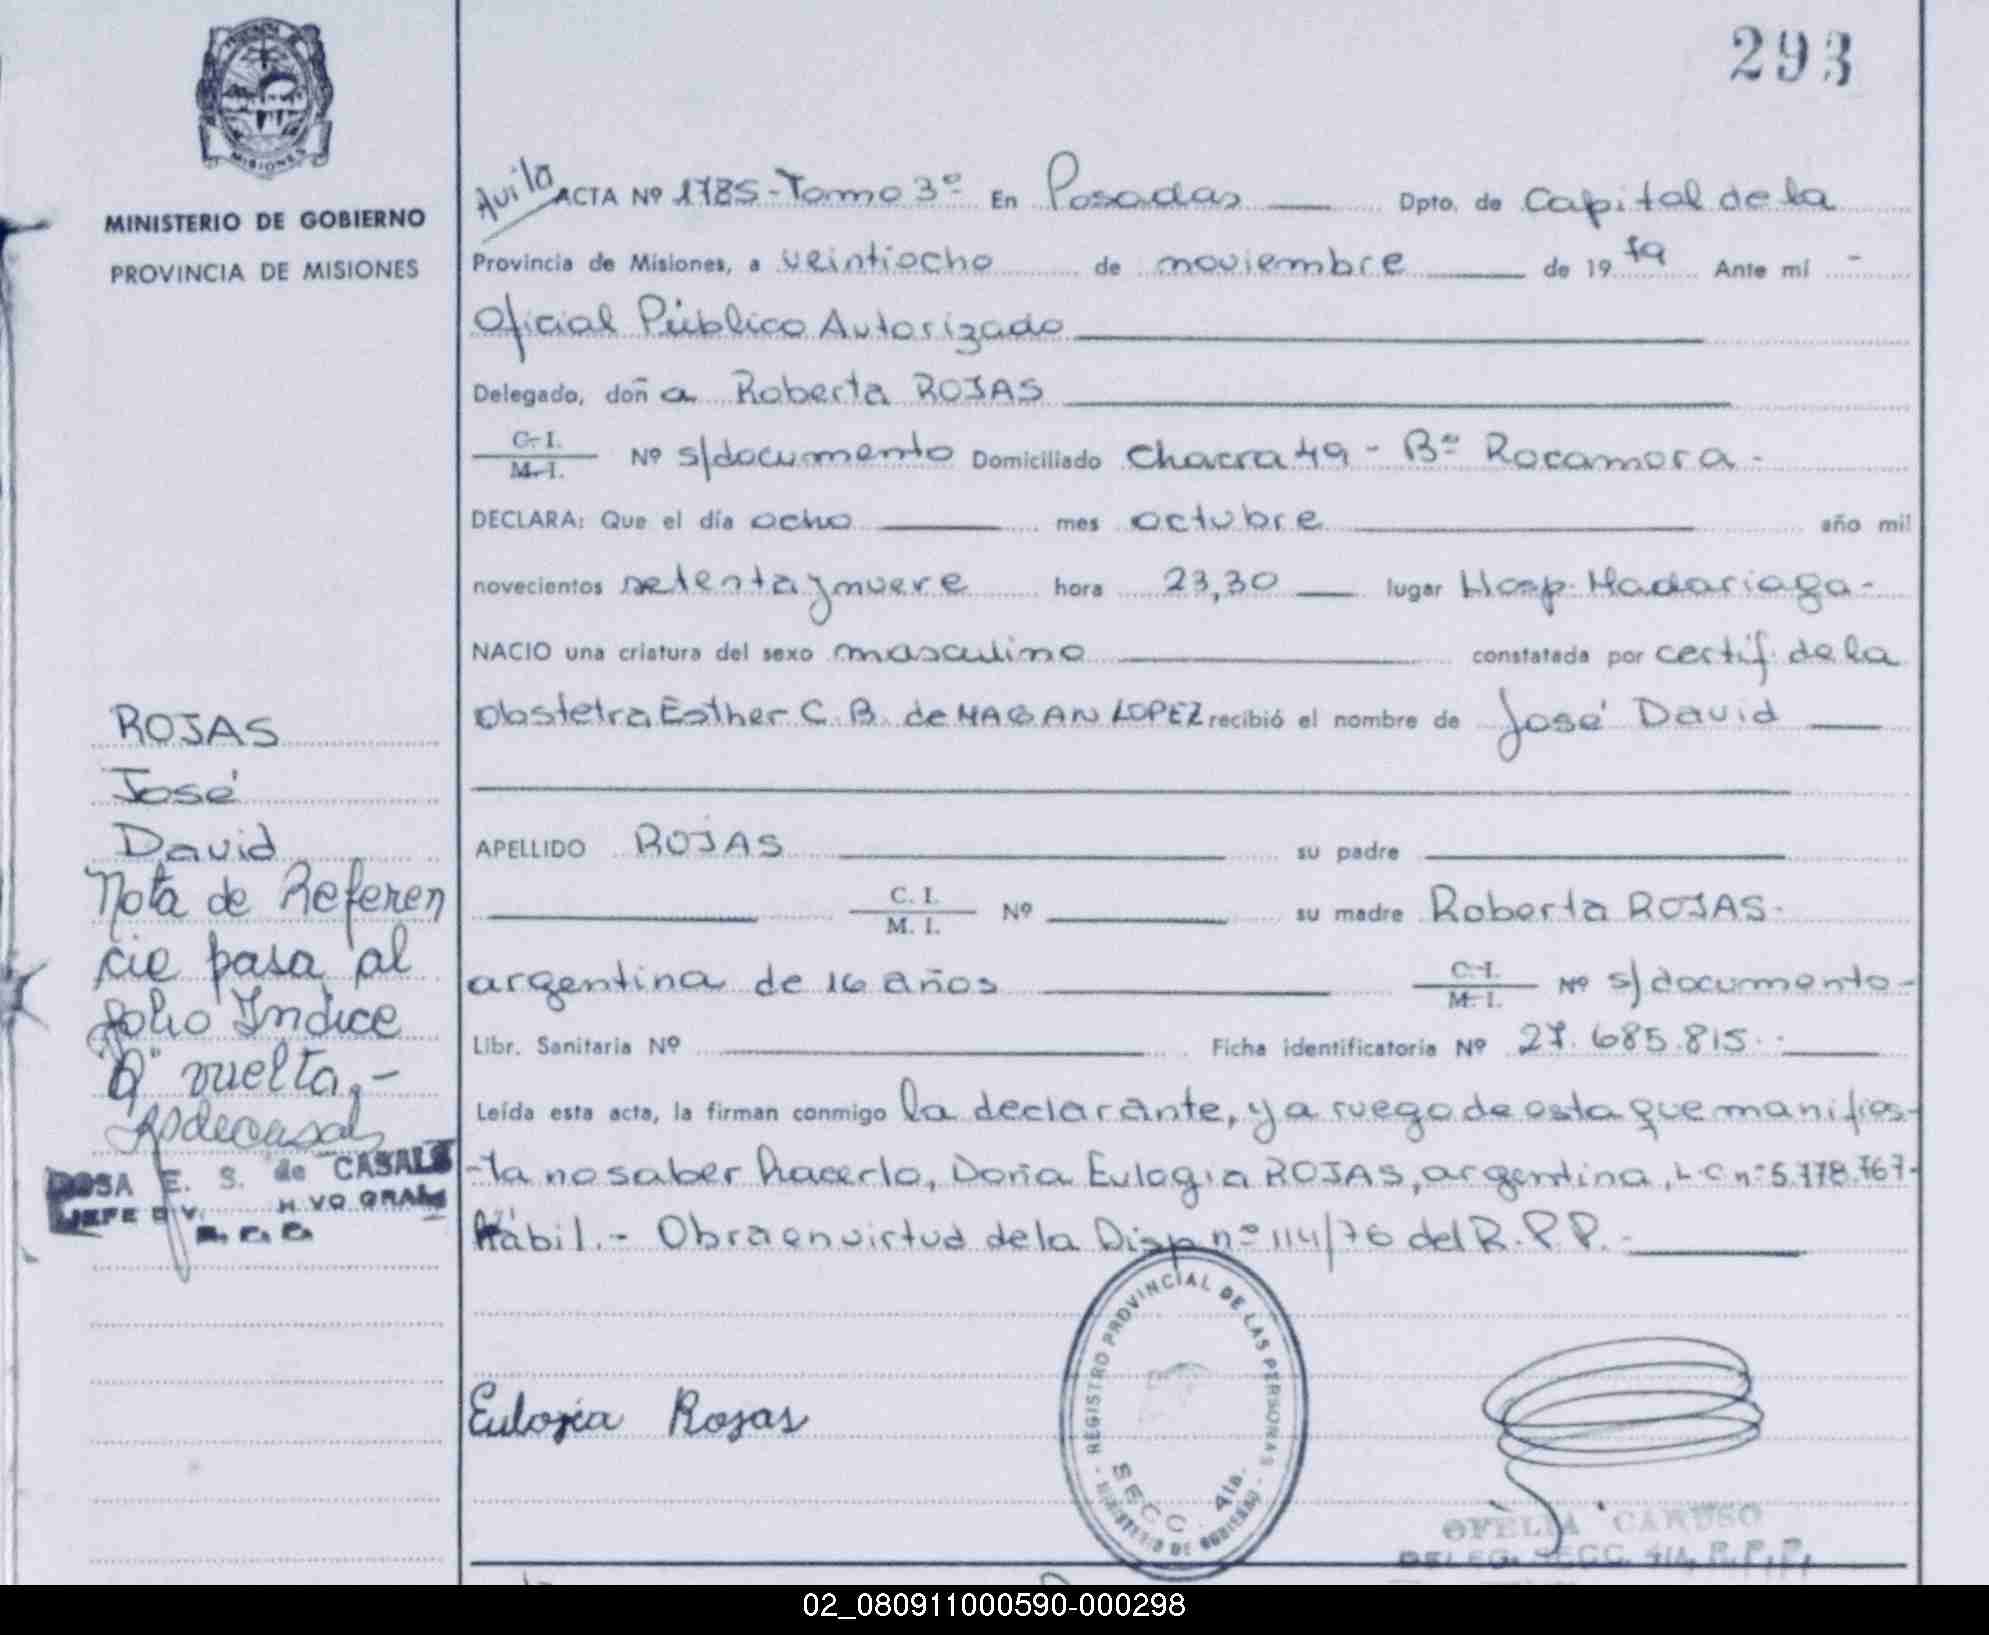 293
MISIONES
MINISTERIO DE GOBIERNO
PROVINCIA DE MISIONES
Avila ACTA Nº 1785-Tomo 3º En Posadas Dpto. de Capital de la
Provincia de Misiones, a veintiocho de noviembre de 19 79 Ante mí -
Oficial Público Autorizado
Delegado, doña Roberta ROJAS
C. I.
M. I. Nº s/documento Domiciliado Chacra 49 - Bº Rocamora -
DECLARA: Que el día ocho mes octubre año mil
novecientos setenta y nueve hora 23,30 lugar Hosp. Madariaga -
NACIO una criatura del sexo masculino constatada por certif. de la
Obstetra Esther C. B. de MAGAN LOPEZ recibió el nombre de José David
APELLIDO ROJAS su padre
C. I.
M. I. Nº su madre Roberta ROJAS -
argentina de 16 años C. I.
M. I. Nº s/documento -
Libr. Sanitaria Nº Ficha identificatoria Nº 27.685.815 -
Leída esta acta, la firman conmigo la declarante, y a ruego de esta que manifies-
-ta no saber hacerlo, Doña Eulogia ROJAS, argentina, L C nº 5.778.767-
Hábil.- Obra en virtud de la Disp nº 114/76 del R.P.P.-
ROJAS
José
David
Nota de Referen
cie pasa al
folio Indice
"Q" vuelta.-
ROSA E. S. de CASALS
JEFE DIV.
R. P. P.
Eulogia Rojas
REGISTRO PROVINCIAL DE LAS PERSONAS
SECC. 4ta.
MINISTERIO DE GOBIERNO
OFELIA CARUSO
DELEG. SECC. 4ta. R.P.P.
02_080911000590-000298